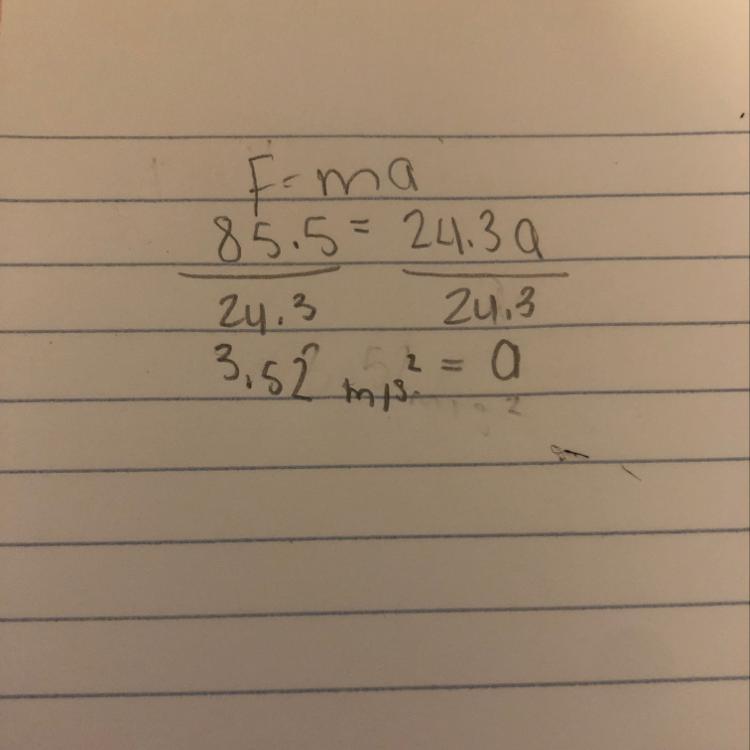 F=ma
85.5 = 24.3a
24.3 24.3
3.52 m/s² = a